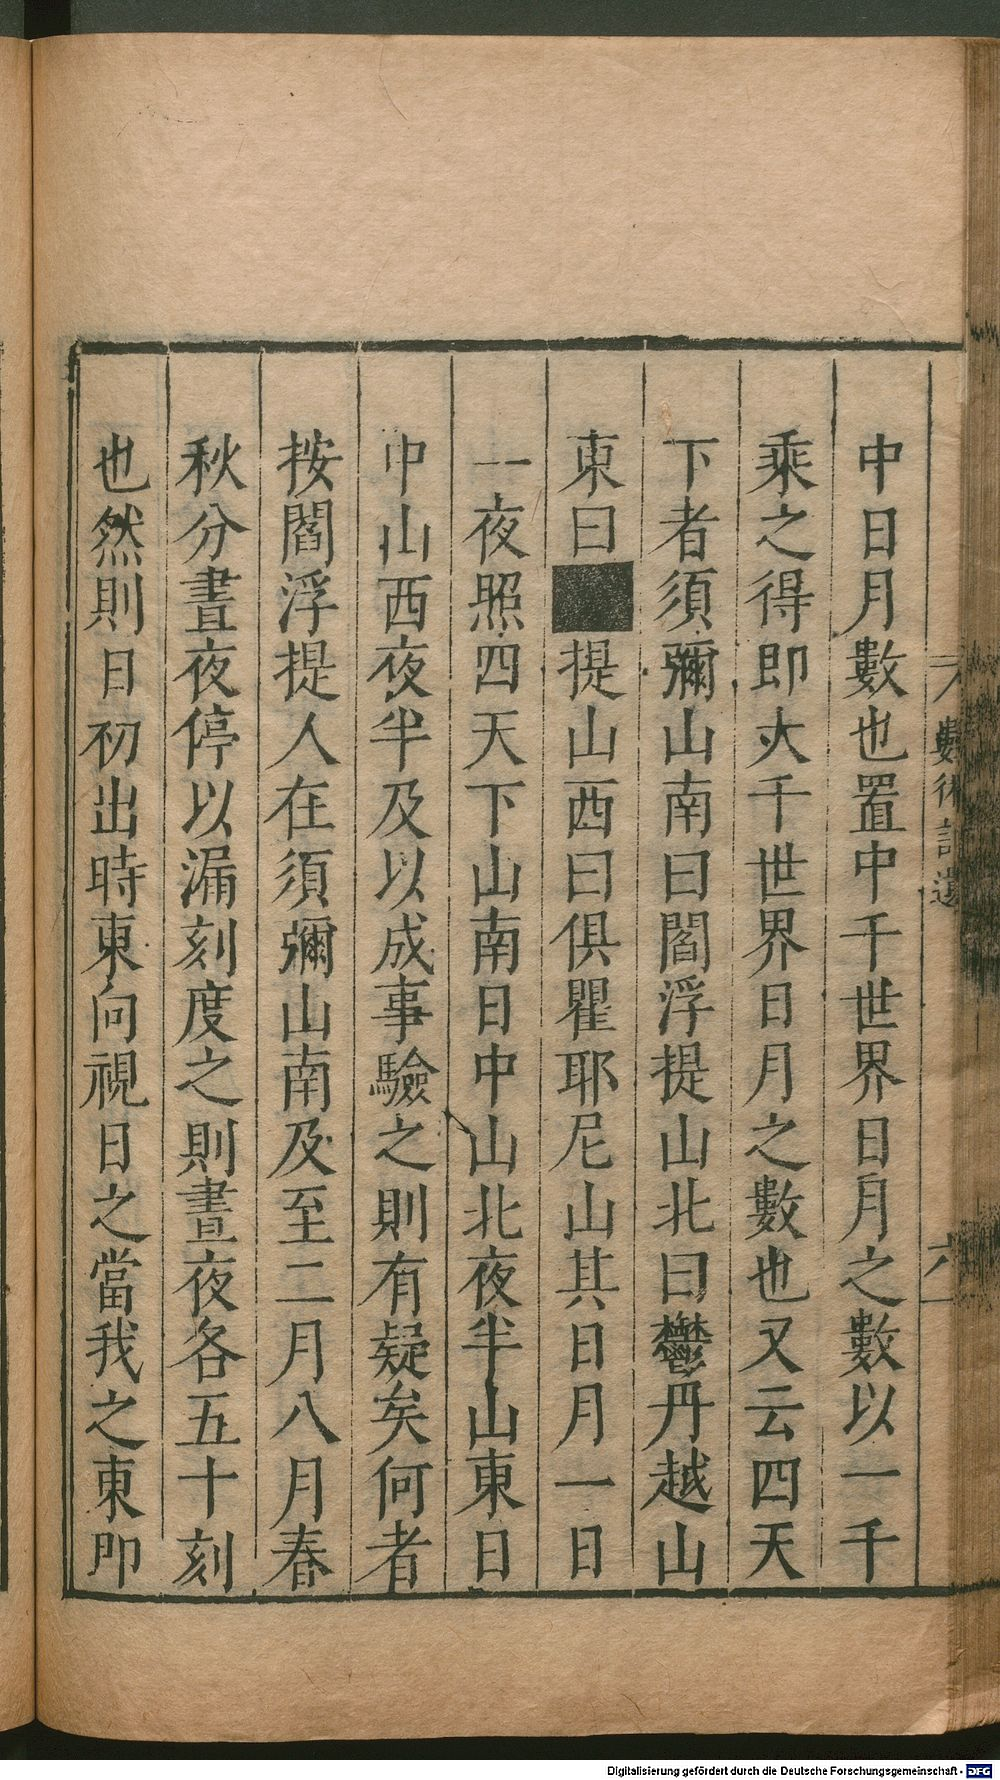 中日月數也置中千世界日月之數以一千
乘之得即大千世界日月之數也又云四天
下者須彌山南曰閻浮提山北曰鬱丹越山
東曰■提山西曰俱瞿耶尼山其日月一日
一夜照四天下山南日中山北夜半山東日
中山西夜半及以成事驗之則有疑矣何者
按閻浮提人在須彌山南及至二月八月春
秋分晝夜停以漏刻度之則晝夜各五十刻
也然則日初出時東向視日之當我之東即
數術記遺
六
Digitalisierung gefördert durch die Deutsche Forschungsgemeinschaft - DFG